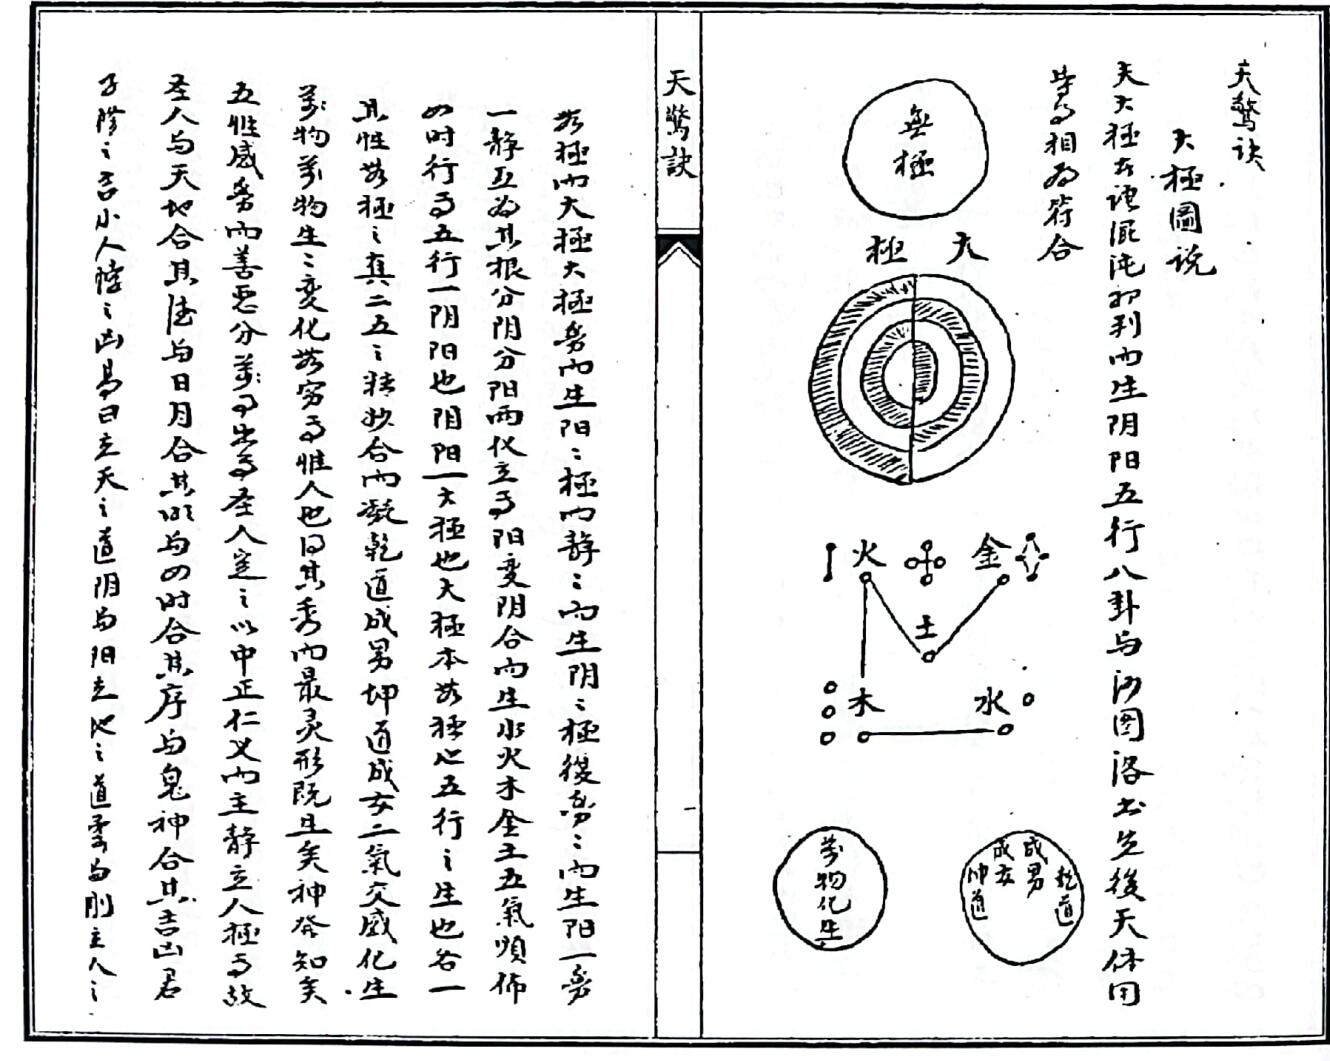 天驚诀
太極圖说
夫太極者混沌初判而生阴阳五行八卦与河图洛书先後天体用
皆相为符合
無極
太極
火
金
土
木
水
乾道成男
坤道成女
萬物化生
天驚訣
无極而太極太極動而生阳〻極而静〻而生阴〻極復動〻而生阳一動
一静互为其根分阴分阳两仪立焉阳变阴合而生水火木金土五氣順佈
四时行焉五行一阴阳也阴阳一太極也太極本无極也五行之生也各一
其性无極之真二五之精妙合而凝乾道成男坤道成女二氣交感化生
萬物萬物生〻变化无穷焉惟人也得其秀而最灵形既生矣神發知矣
五性感動而善恶分萬事出焉圣人定之以中正仁义而主静立人極焉故
圣人与天地合其德与日月合其明与四时合其序与鬼神合其吉凶君
子修之吉小人悖之凶易曰立天之道阴与阳立地之道柔与刚立人之